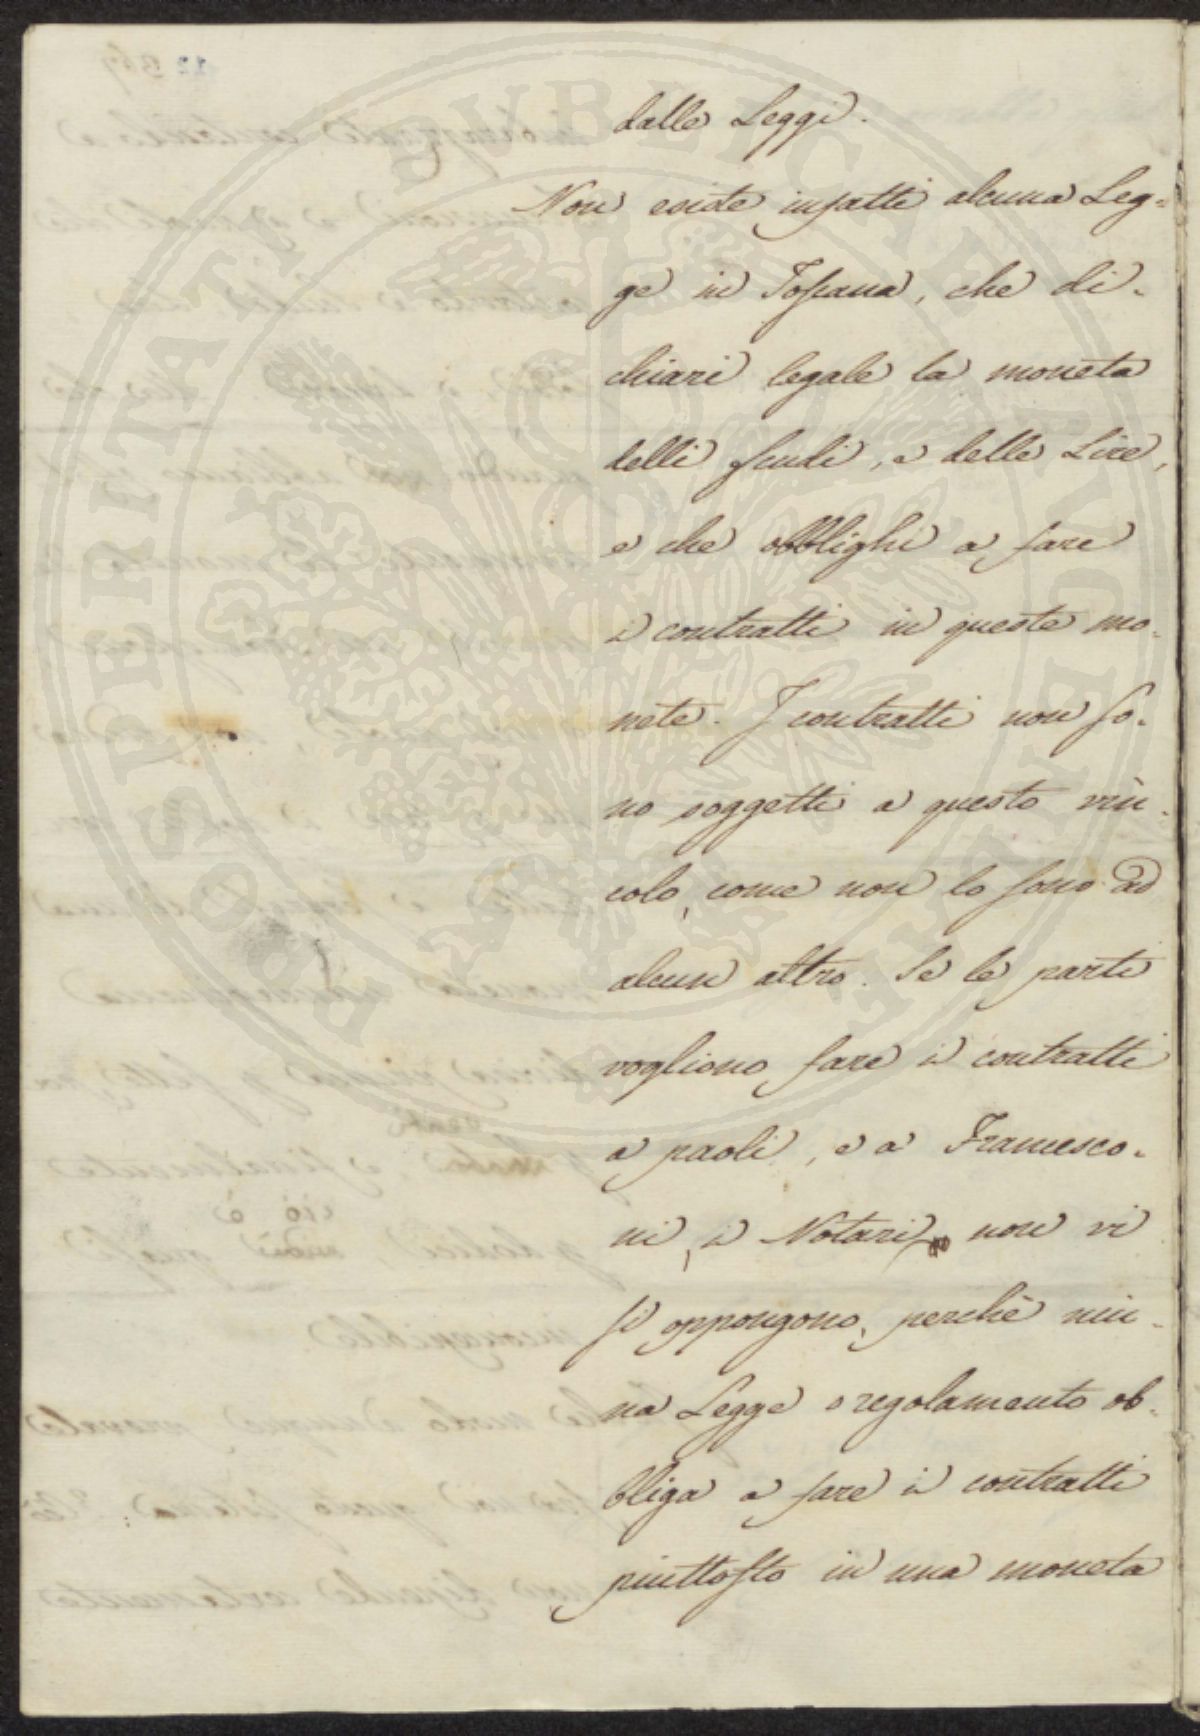 dalle Leggi.
Non esiste infatti alcuna Leg=
ge in Toscana, che di-
chiari legale la moneta
delli scudi, e delle Lire,
e che obblighi a fare
i contratti in queste mo-
nete. I contratti non so-
no soggetti a questo vin-
colo, come non lo sono ad
alcun altro. Se le parti
vogliono fare i contratti
a paoli, e a Francesco-
ni, i Notari non vi
si oppongono, perchè niu-
na Legge o regolamento ob-
bliga a fare i contratti
piuttosto in una moneta
PROSPERITATI PUBLICAE AUGENDAE